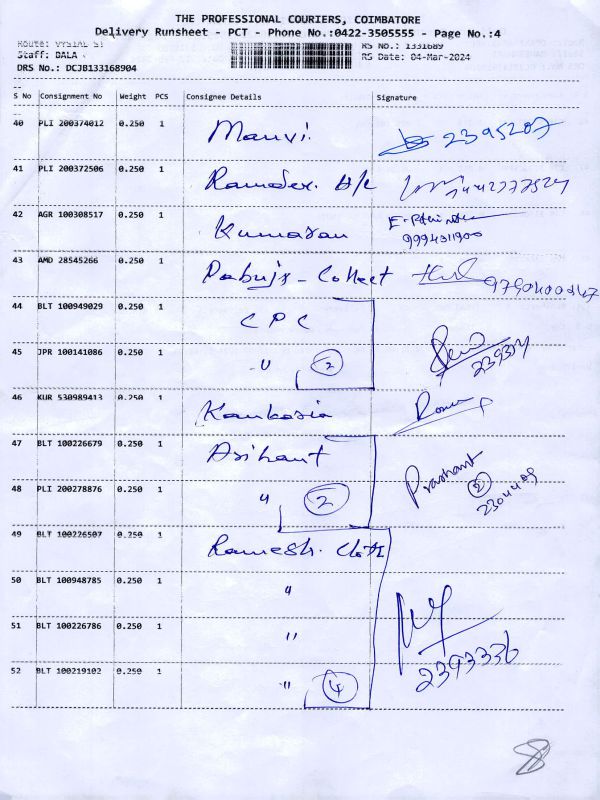 THE PROFESSIONAL COURIERS, COIMBATORE
Delivery Runsheet - PCT - Phone No.:0422-3505555 - Page No.:4
Staff: DALA RS No.: 1331689
DRS No.: DCJB133168904 RS Date: 04-Mar-2024
S No Consignment No Weight PCS Consignee Details Signature
40 PLI 200374012 0.250 1 Manvi. 2395207
41 PLI 200372506 0.250 1
42 AGR 100308517 0.250 1 Kumaran
9994311900
43 AMD 28545266 0.250 1 Collect
44 BLT 100949029 0.250 1 C P C
45 JPR 100141086 0.250 1 〃 2
46 KUR 530989413 0.250 1
47 BLT 100226679 0.250 1 Arihant Prashant
48 PLI 200278876 0.250 1 〃 2 2 2304409
49 BLT 100226507 0.250 1 Ramesh.
50 BLT 100948785 0.250 1 〃
51 BLT 100226786 0.250 1 〃
52 BLT 100219102 0.250 1 〃 4 2393336
8